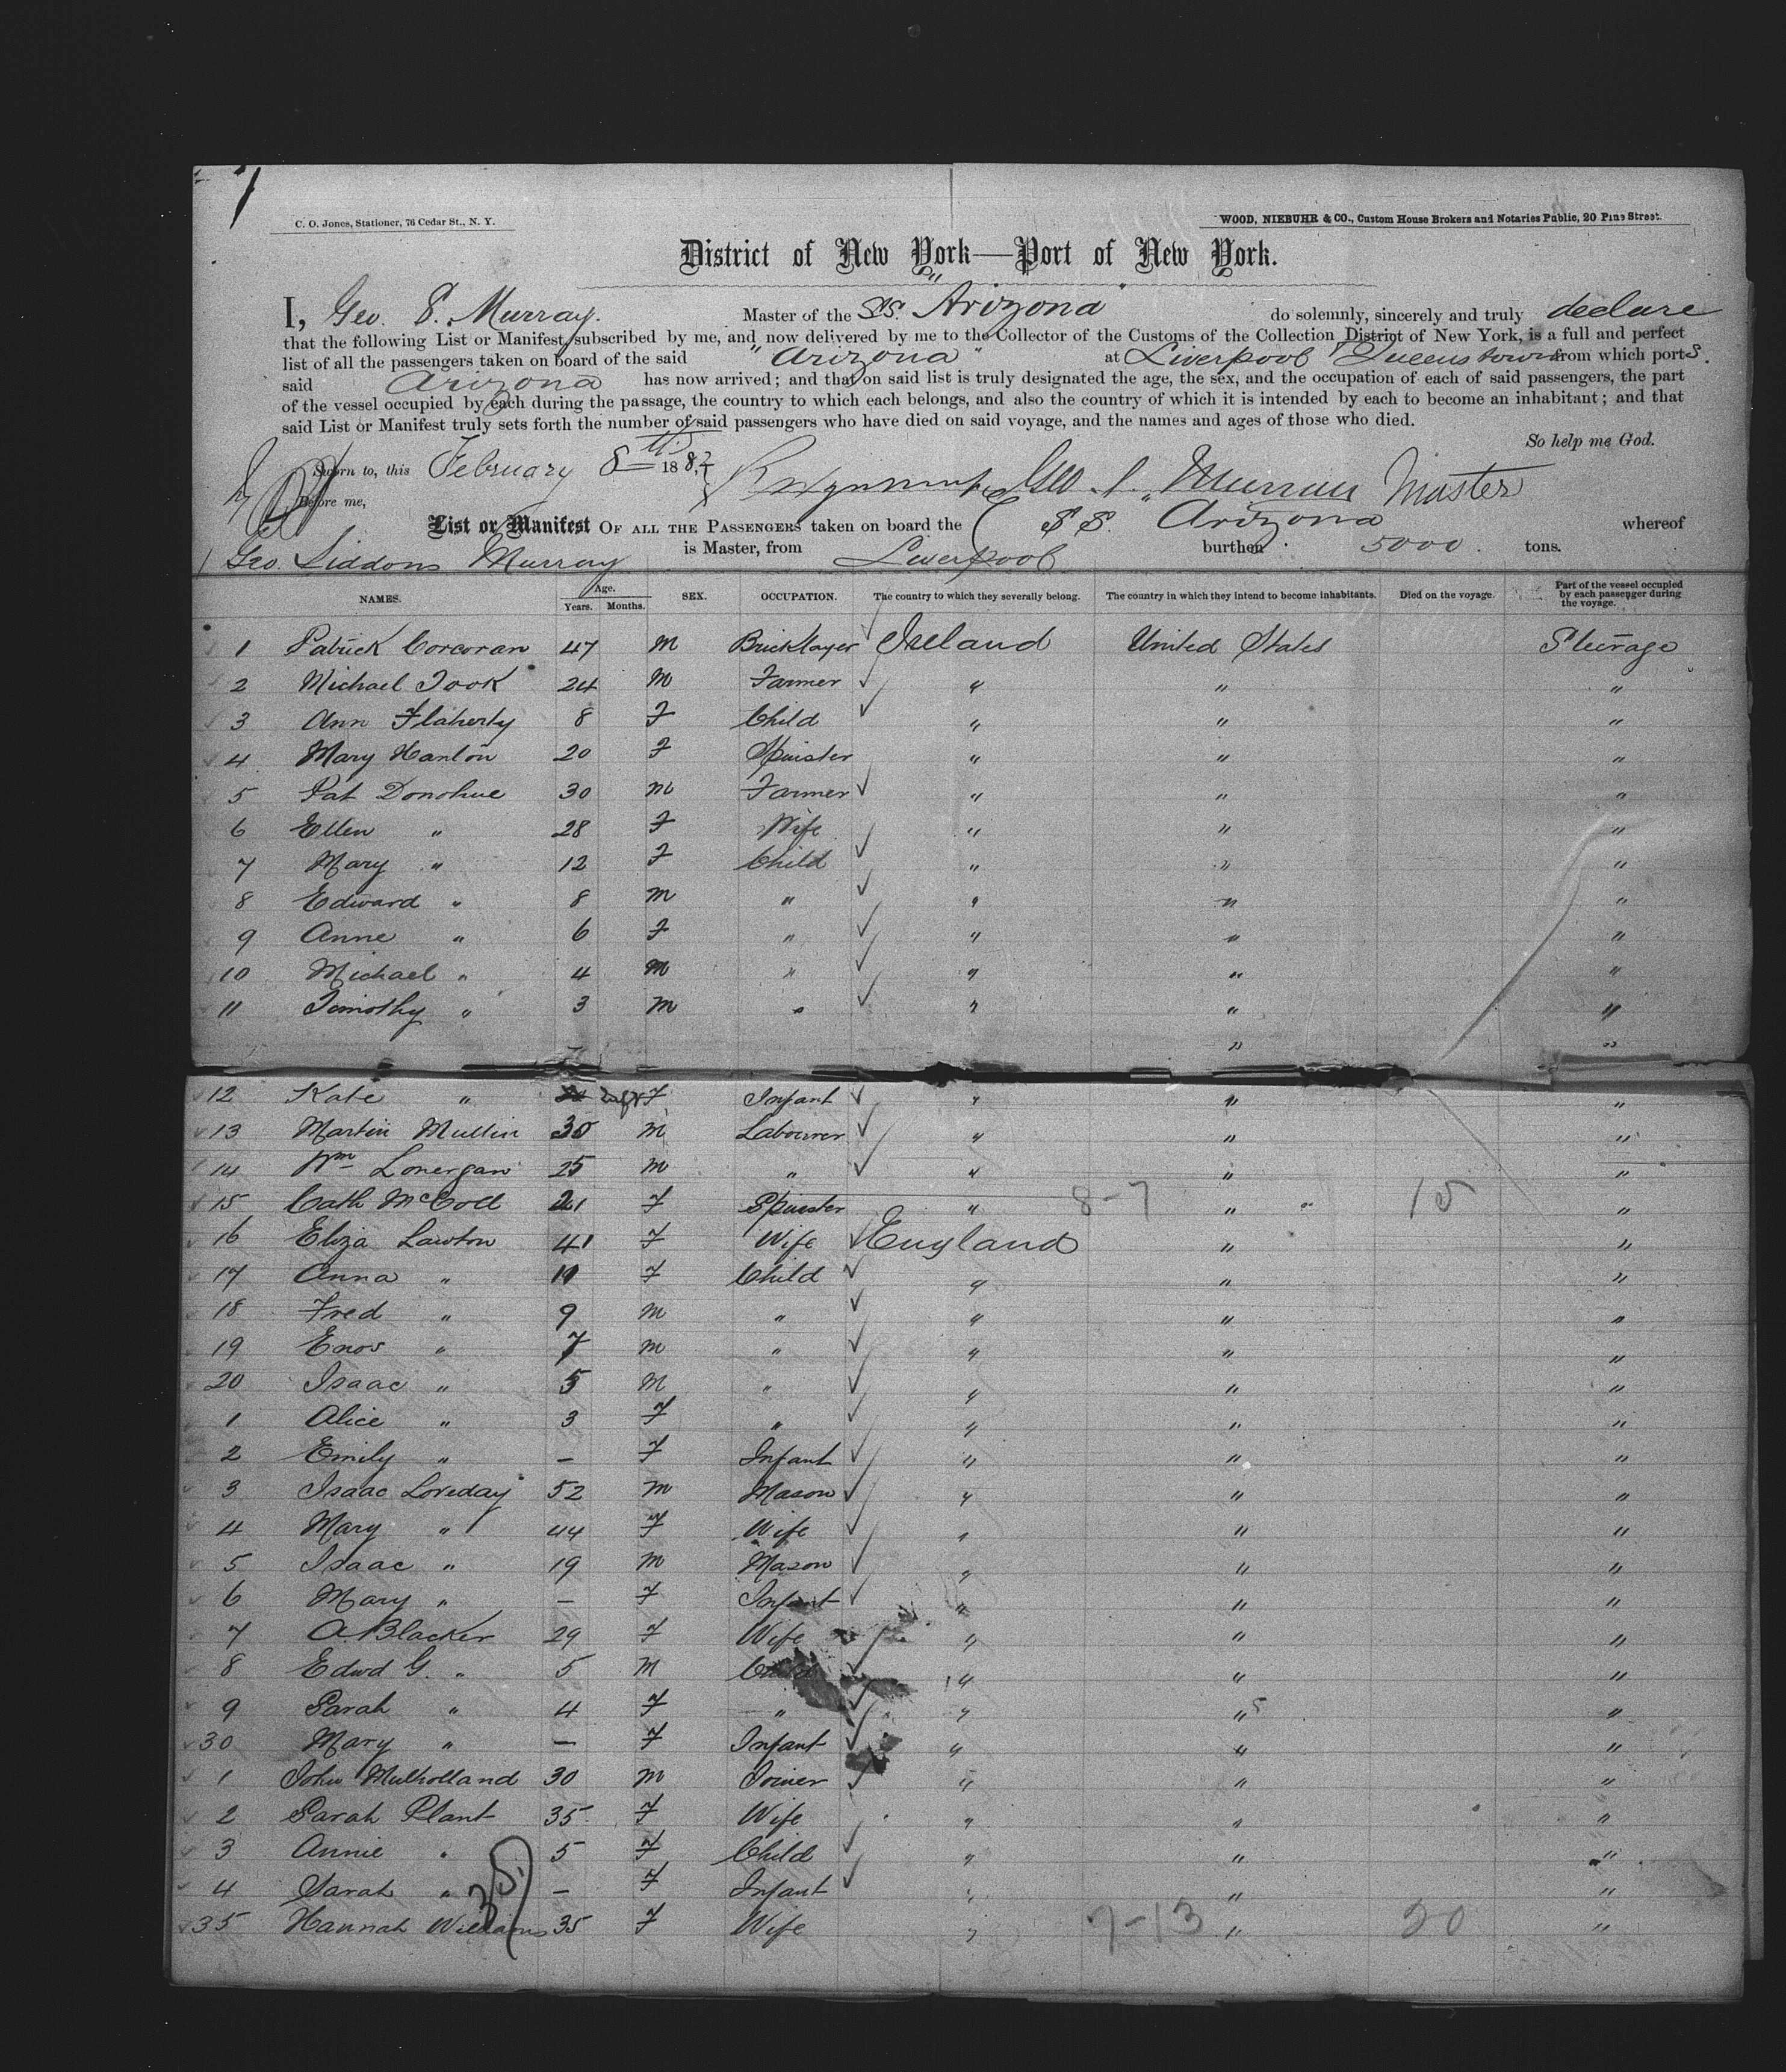 1
C. O. Jones, Stationer, 76 Cedar St., N. Y.
WOOD, NIEBUHR & CO., Custom House Brokers and Notaries Public, 20 Pine Street.
District of New York—Port of New York.
I, Geo. S. Murray. Master of the SS. "Arizona" do solemnly, sincerely and truly declare
that the following List or Manifest, subscribed by me, and now delivered by me to the Collector of the Customs of the Collection District of New York, is a full and perfect
list of all the passengers taken on board of the said "Arizona" at Liverpool Queenstown from which ports.
said Arizona has now arrived; and that on said list is truly designated the age, the sex, and the occupation of each of said passengers, the part
of the vessel occupied by each during the passage, the country to which each belongs, and also the country of which it is intended by each to become an inhabitant; and that
said List or Manifest truly sets forth the number of said passengers who have died on said voyage, and the names and ages of those who died.
So help me God.
Sworn to, this February 8th 188 Geo. S. Murray Master
Before me,
List or Manifest OF ALL THE PASSENGERS taken on board the SS. Arizona whereof
Geo. Siddons Murray is Master, from Liverpool burthen 5000. tons.
NAMES. Age. Years. Months. SEX. OCCUPATION. The country to which they severally belong. The country in which they intend to become inhabitants. Died on the voyage. Part of the vessel occupied by each passenger during the voyage.
1 Patrick Corcoran 47 M Bricklayer Ireland United States Steerage
2 Michael Took 24 M Farmer " " "
3 Ann Flaherty 8 F Child " " "
4 Mary Hanlon 20 F Spinster " " "
5 Pat Donohue 30 M Farmer " " "
6 Ellen " 28 F Wife " " "
7 Mary " 12 F Child " " "
8 Edward " 8 M " " " "
9 Anne " 6 F " " " "
10 Michael " 4 M " " " "
11 Timothy " 3 M " " " "
" "
12 Kate " F Infant " " "
13 Martin Mullin 30 M Labourer " " "
14 Wm Lonergan 25 M " " " "
15 Cath McColl 21 F Spinster " 8-7 " " 15 "
16 Eliza Lawton 41 F Wife England " "
17 Anna " 11 F Child " " "
18 Fred " 9 M " " " "
19 Enos " 7 M " " " "
20 Isaac " 5 M " " " "
1 Alice " 3 F " " " "
2 Emily " — F Infant " " "
3 Isaac Loveday 52 M Mason " " "
4 Mary " 44 F Wife " " "
5 Isaac " 19 M Mason " " "
6 Mary " — F Infant " " "
7 A. Blacker 29 F Wife " " "
8 Edwd G. " 5 M Child " " "
9 Sarah " 4 F " " " "
30 Mary " — F Infant " " "
1 John Mulholland 30 M Joiner " " "
2 Sarah Plant 35 F Wife " " "
3 Annie " 5 F Child " " "
4 Sarah " — F Infant " " "
35 Hannah Williams 35 F Wife " 7-13 " 20 "
35